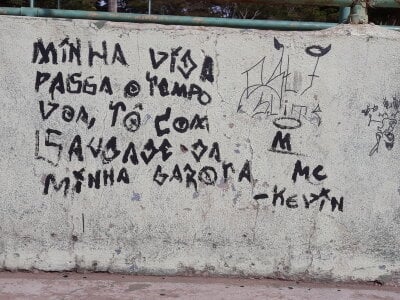 MINHA VIDA
PASSA O TEMPO
VOA, TÔ COM
SAUDADE DA
MINHA GAROTA
M
MC
-KEVIN